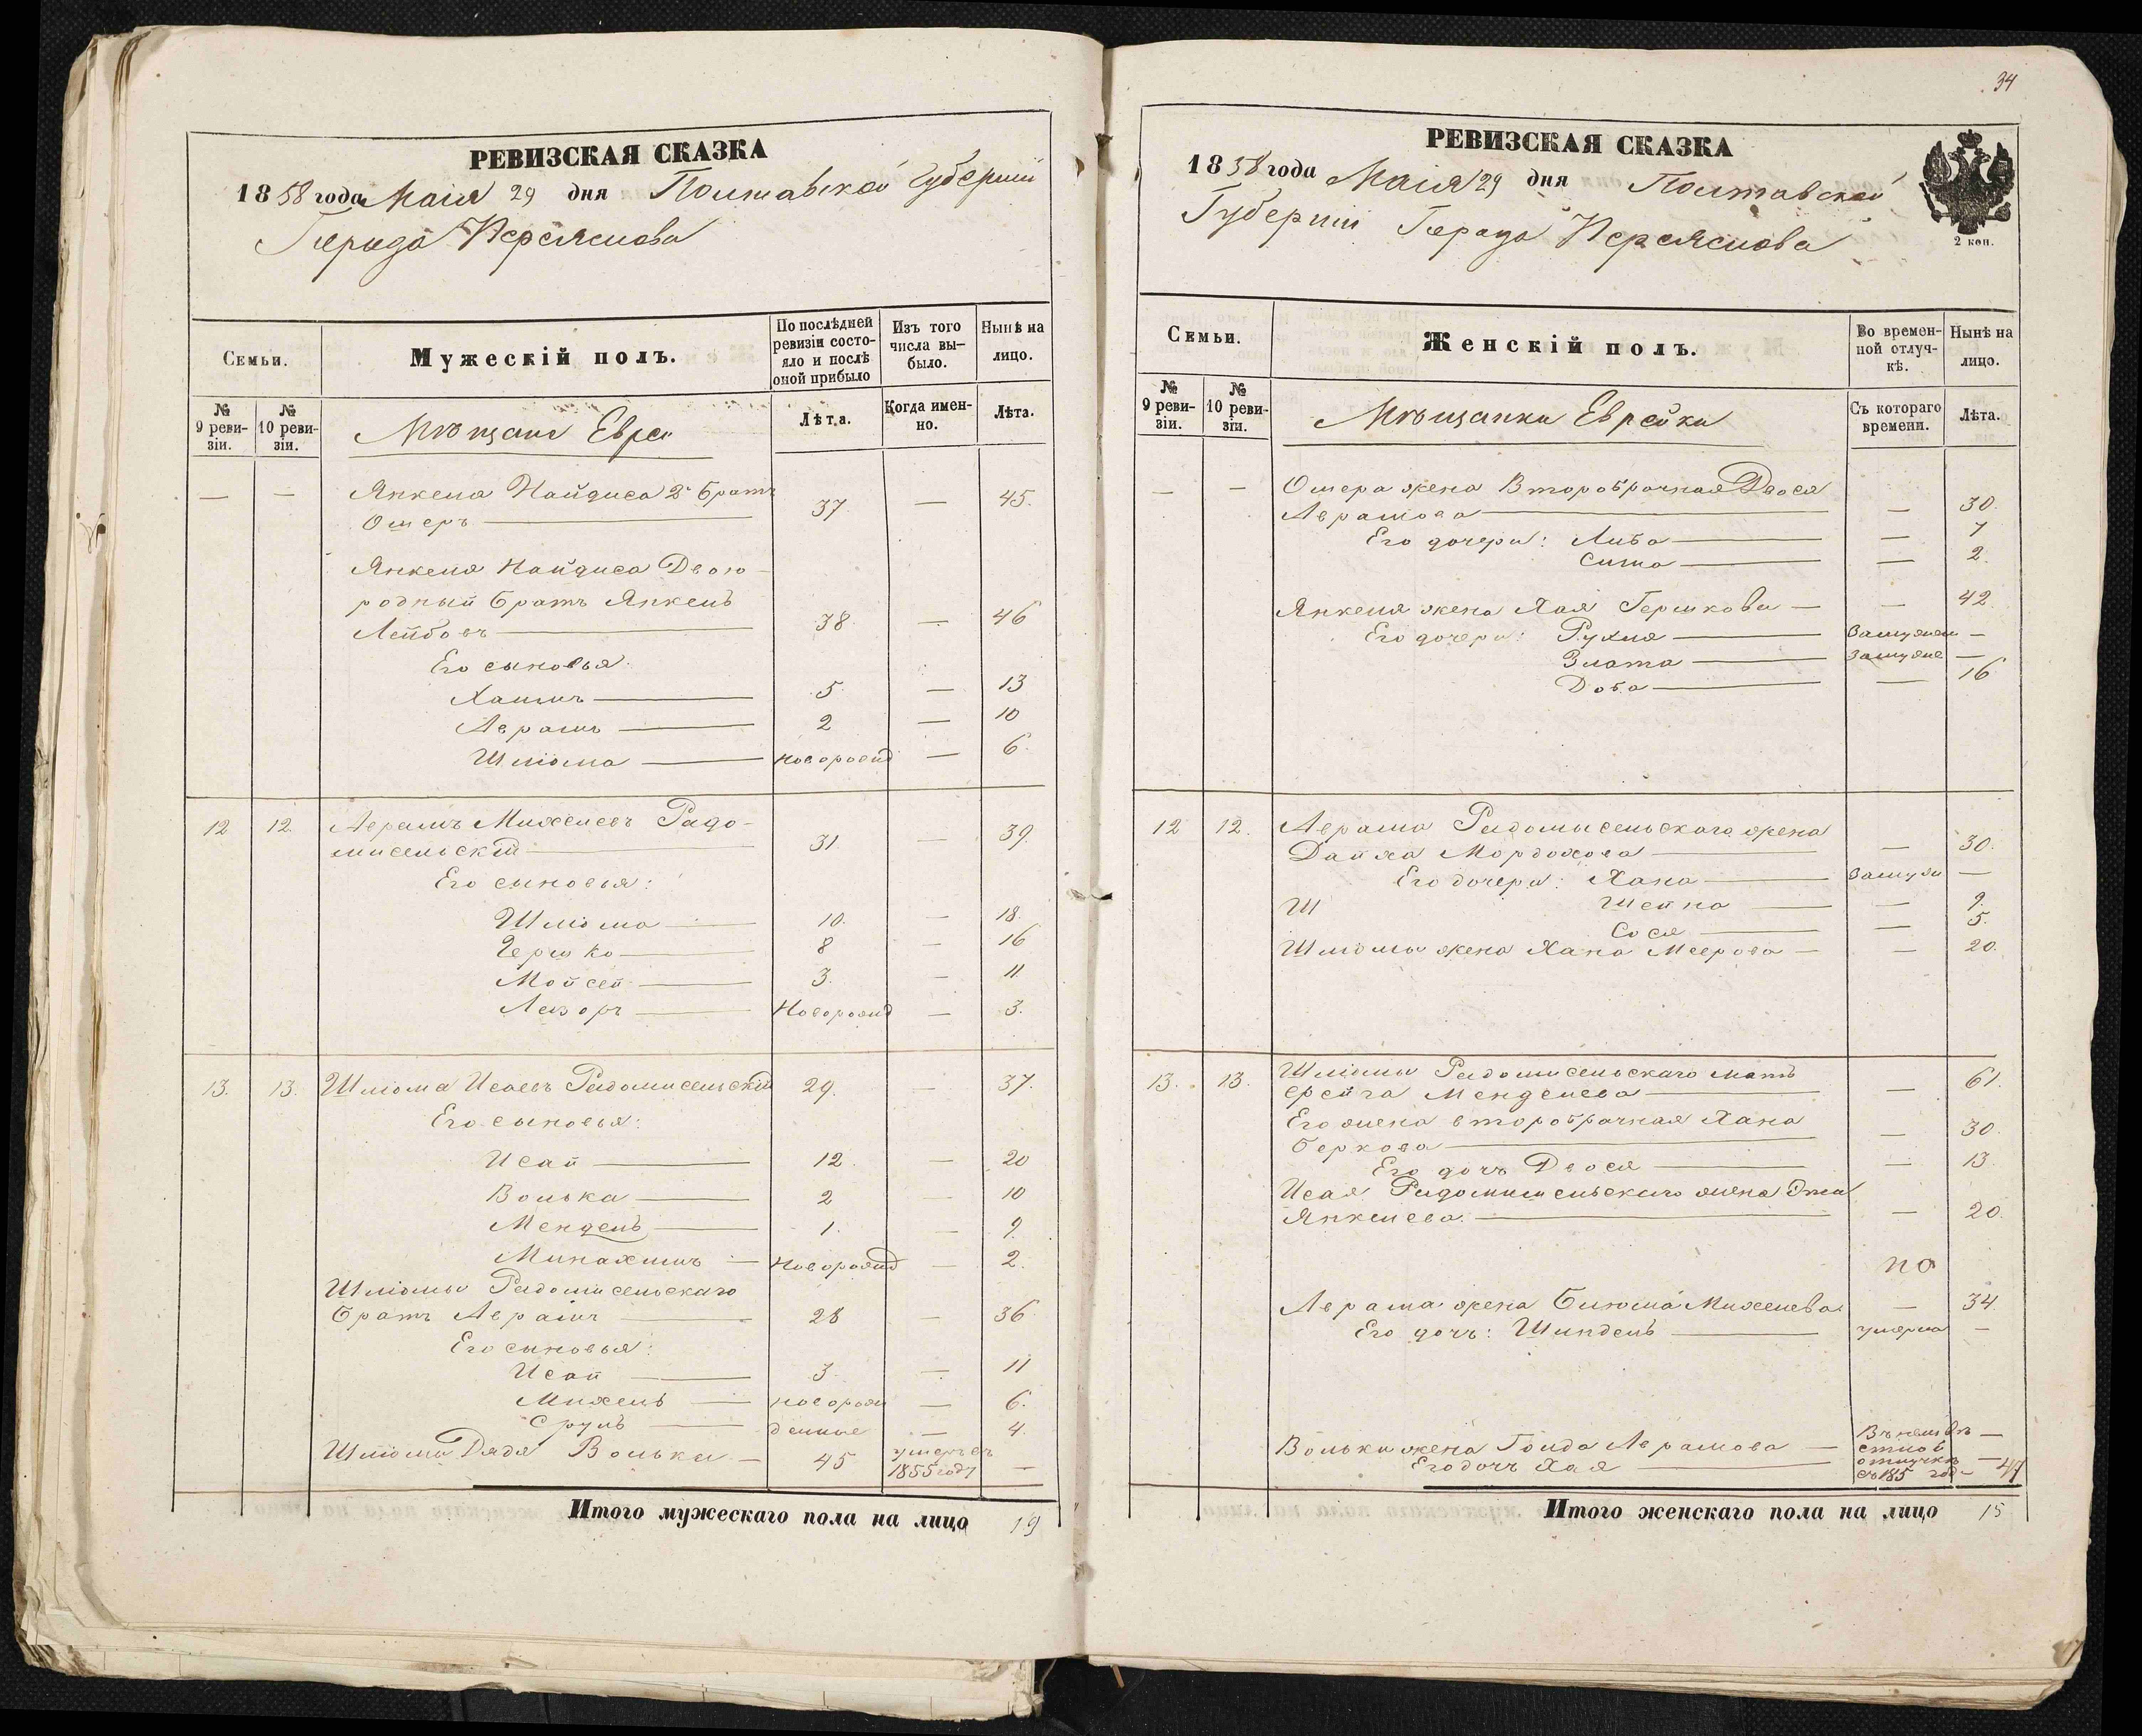 РЕВИЗСКАЯ СКАЗКА
1858 года Маія 29 дня Полтавской Губерніи
Города Переяслова
Семьи.
Мужескій полъ.
По послѣдней ревизіи состо-
яло и послѣ
оной прибыло
Изъ того
числа вы-
было.
Нынѣ на
лицо.
№
9 реви-
зіи.
№
10 реви-
зіи.
Мѣщане Евреи
Лѣта.
Когда имен-
но.
Лѣта.
— — Янкеля Найдиса 2й братъ
Ошеръ — 37 — 45.
Янкеля Найдиса Двою-
родный братъ Янкель
Лейбовъ — 38 — 46
Его сыновья:
Хаимъ — 5 — 13
Аврамъ — 2 — 10
Шлiома — новорожд — 6.
12 12. Аврамъ Михелевъ Радо-
мисельскій — 31 — 39.
Его сыновья:
Шлiома — 10. — 18.
Гершко — 8 — 16
Мойсей — 3. — 11.
Лейзоръ — Новорожд — 3.
13. 13. Шлiома Исаевъ Радомисельскій 29. — 37.
Его сыновья:
Исай — 12. — 20
Волька — 2 — 10
Мендель — 1. — 9.
Минахимъ — Новорожд — 2.
Шлiомы Радомисельскаго
братъ Аврамъ — 28 — 36
Его сыновья:
Исай — 3 — 11
Михель — новорож — 6.
Сруль — денные — 4.
Шлiомы Дядя Волька — 45 умеръ въ
1855 году —
Итого мужескаго пола на лицо 19
34
РЕВИЗСКАЯ СКАЗКА
1858 года Маія 29 дня Полтавской
Губерніи Города Переяслова
2 коп.
Семьи.
Женскій полъ.
Во времен-
ной отлуч-
кѣ.
Нынѣ на
лицо.
№
9 реви-
зіи.
№
10 реви-
зіи.
Мѣщанки Еврейки
Съ котораго
времени.
Лѣта.
— — Ошера жена Второбрачная Двося
Аврамова — — 30.
Его дочери: Либа — — 7
Сима — — 2.
Янкеля жена Хая Гершкова — — 42.
Его дочери: Рухля — Замужем —
Злата — Замуже —
Доба — — 16
12 12. Аврама Радомисельскаго жена
Дайха Мордохова — — 30.
Его дочери: Хана — Замуж —
Ш Шейна — — 9.
Сося — — 5.
Шлiомы жена Хана Меерова — — 20.
13. 13. Шлiомы Радомисельскаго мать
Фрейга Менделева — — 61.
Его жена второбрачная Хана
Беркова — — 30.
Его дочь Двося — — 13.
Исая Радомисельскаго жена Эта
Янкелева. — — 20.
по
Аврама жена Блюма Михелева — 34.
Его дочь: Шиндель — умерла —
Вольки жена Голда Аврамова — —
Его дочь Хая — отлучкѣ
съ 185 год —
Итого женскаго пола на лицо 15